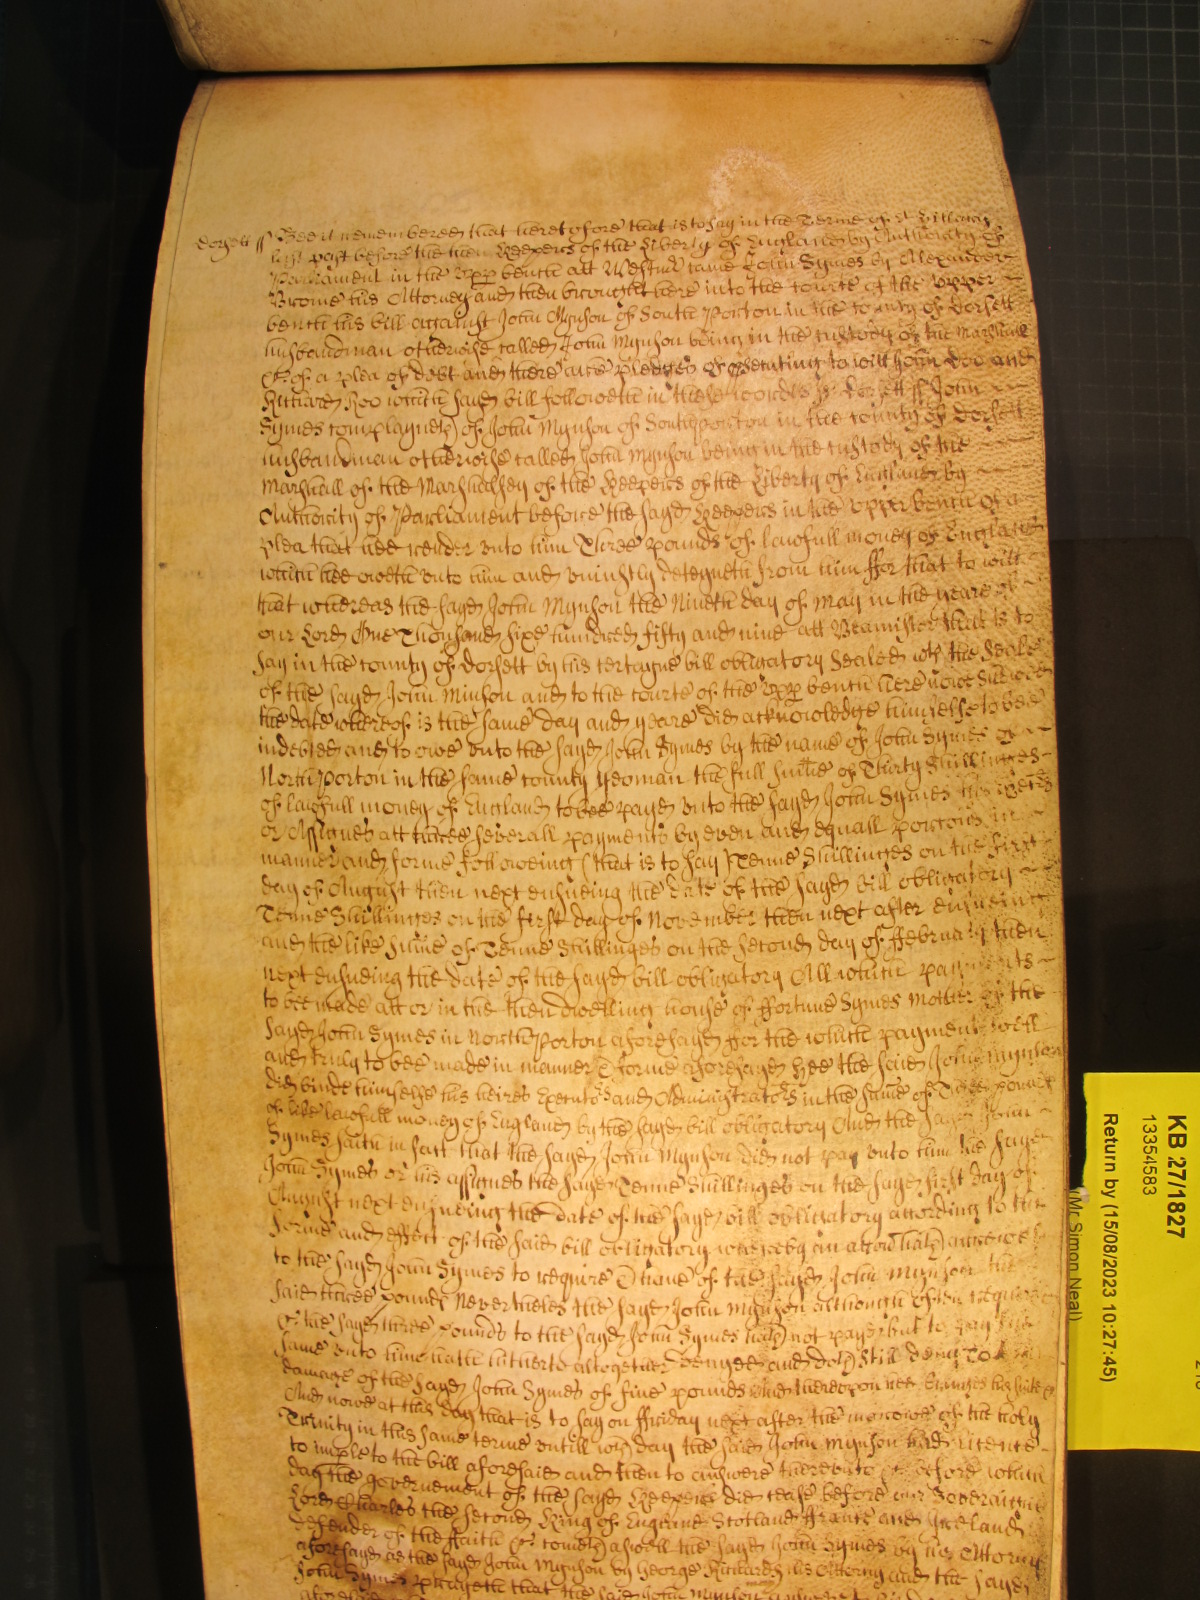 Dorsett ss Bee it remembered that heretofore that is to say in the Terme of St Hillary
last past before the then Keepers of the Liberty of England by Authority of
Parliament in the upp bench att Westmr came John Symes by Alexander
Broome his Attorney and then brought here into the Courte of the upper
bench his bill against John Mynson of South Porton in the County of Dorsett
husbandman otherwise called John Mynson being in the custody of the Marshall
&c of a plea of debt and there are pledges of prosecuting to witt John Doo and
Richard Roo which sayd bill followeth in these wordes ss Dorsett ss John
Symes complayneth of John Mynson of South porton in the County of Dorsett
husbandman otherwise called John Mynson being in the custody of the
Marshall of the Marshalsey of the Keepers of the Liberty of England by
Authority of Parliament before the sayd Keepers in the upper bench of a
plea that hee render unto him Three pounds of lawfull money of England
which hee oweth unto him and uniustly deteyneth from him ffor that to witt
that whereas the sayd John Mynson the Nineth day of May in the yeare of
our Lord One Thousand sixe hundred fifty and nine att Beamister that is to
say in the county of Dorsett by his certayne bill obligatory Sealed wth the Seale
of the sayd John Minson and to the Courte of the upp bench here now shewed
the date whereof is the same day and yeare did acknowledge himselfe to bee
indebted and to owe unto the sayd John Symes by the name of John Symes of
North porton in the same county yeoman the full sume of Thirty Shillinges
of lawfull money of England to bee payd unto the sayd John Symes his heires
or Assignes att three severall payments by even and equall portions in
manner and forme following (that is to say) Tenne Shillinges on the first
day of August then next ensueing the date of the sayd bill obligatory
Tenne Shillinges on the first day of November then next after ensueing
and the like sume of Tenne Shillinges on the second day of ffebruary then
next ensueing the date of the sayd bill obligatory All which payments
to bee made att or in the then dwelling house of ffortune Symes mother of the
sayd John Symes in North Porton aforesayd ffor the which payment well
and truly to bee made in manner & forme aforesayd Hee the said John Mynson
did binde himselfe his heires Executors and Administrators in the sume of Three pounds
of like lawfull money of England by the sayd bill obligatory And the sayd John
Symes saith in fact that the sayd John Mynson did not pay unto him the sayd
John Symes or his assignes the sayd Tenne Shillinges on the sayd first day of
August next ensueing the date of the sayd bill obligatory according to the
forme and effect of the said bill obligatory whereby an accon hath accrewed
to the sayd John Symes to require & have of the sayd John Mynson the
said three pounds Neverthelesse the sayd John Mynson although often required
&c the sayd three pounds to the sayd John Symes hath not payd but to pay the
same unto him hath hitherto altogether denyed and doth still deny To the
damage of the sayd John Symes of five pounds And thereupon hee bringes his suite &c
And nowe at this day that is to say on ffriday next after the morrow of the holy
Trinity in this same terme untill wch day the said John Mynson had licence
to imple to the bill aforesaid and then to answere thereunto &c before which
day the government of the sayd Keepers did cease before our Soveraigne
Lord Charles the Second King of England Scotland ffrance and Ireland
defender of the ffaith &c cometh aswell the sayd John Symes by his Attorny
aforesayd as the sayd John Mynson by George Richards his Attorny and the sayd
John Symes prayeth that the said John Mynson
KB 27/1827
13354583
Return by (15/08/2023 10:27:45)
(Mr Simon Neal)